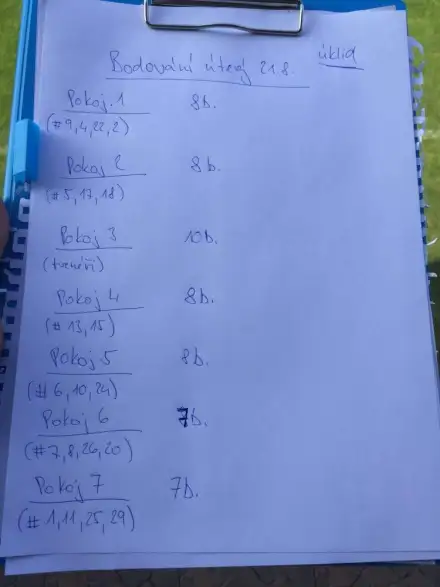 Bodování úterý 21.8. úklid
Pokoj 1 8b.
(#9,4,22,2)
Pokoj 2 8b.
(#5,17,18)
Pokoj 3 10b.
(trenéři)
Pokoj 4 8b.
(#13,15)
Pokoj 5 8b.
(#6,10,24)
Pokoj 6 7b.
(#7,8,26,20)
Pokoj 7 7b.
(#1,11,25,29)